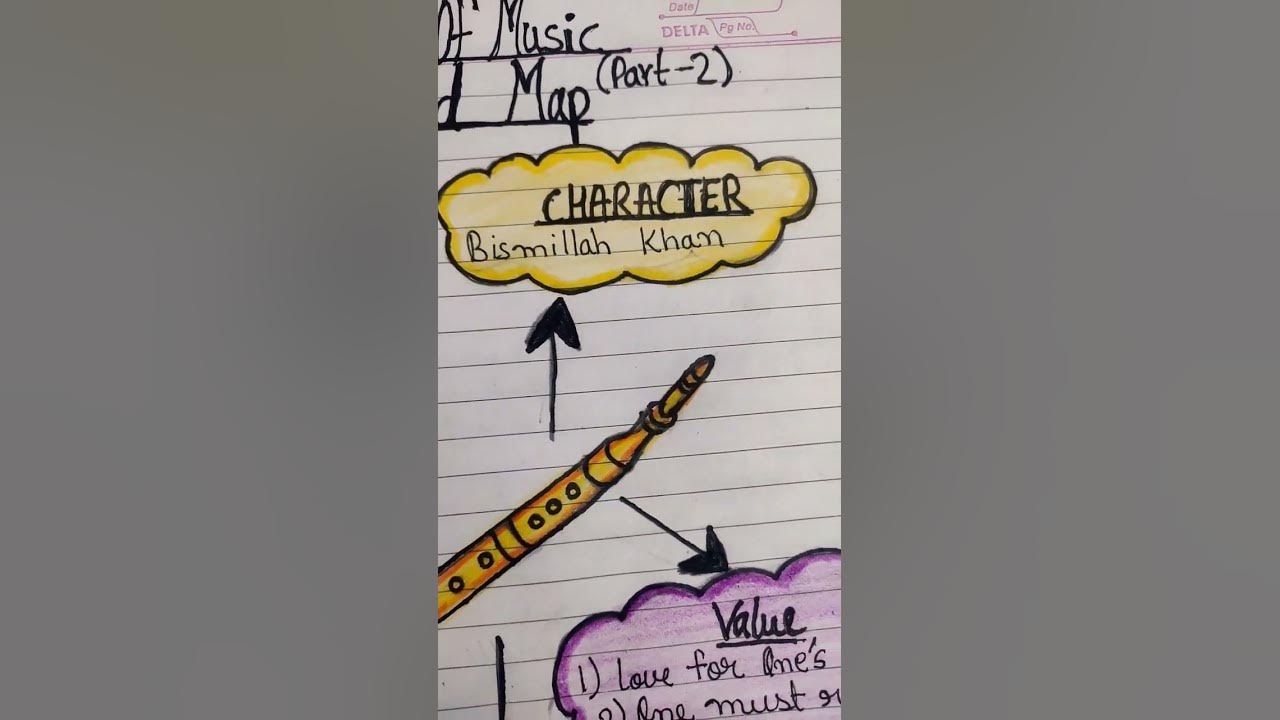 Date
DELTA Pg No.
Of Music
d Map (Part-2)
CHARACTER
Bismillah Khan
Value
1) Love for One's
2) One must